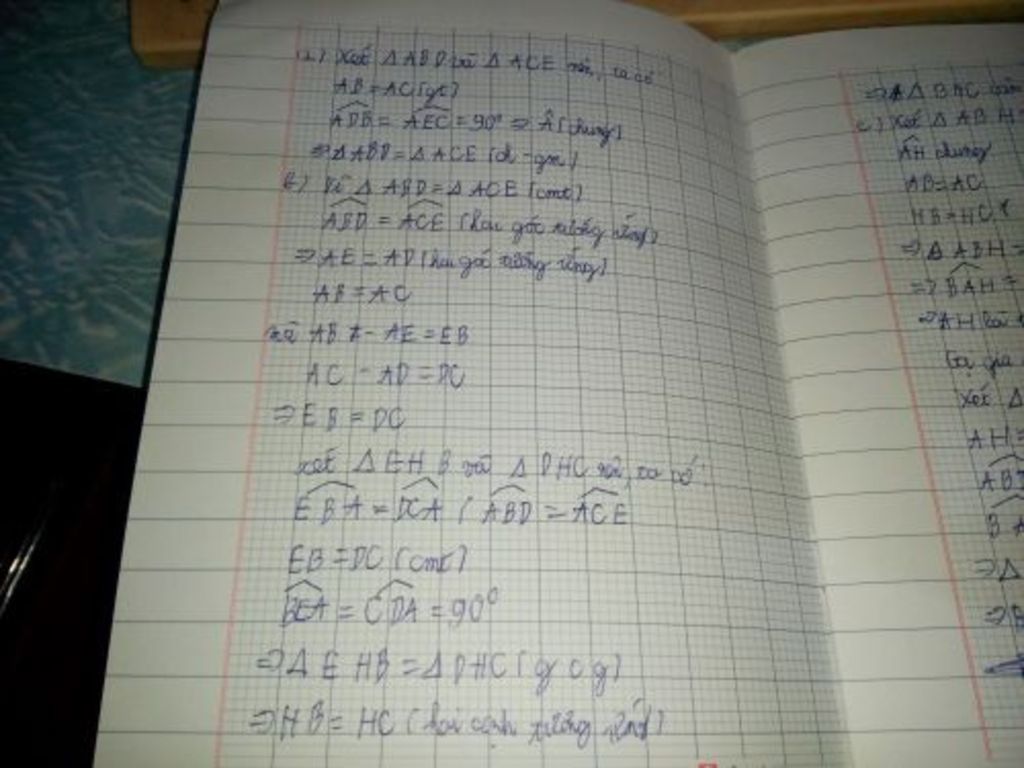 a) Xét Δ ABD và Δ ACE có
AB = AC (gt)
ADB = AEC = 90° ⇒ Â (chung)
⇒ Δ ABD = Δ ACE (ch - gn)
b) Vì Δ ABD = Δ ACE (cmt)
ABD = ACE (hai góc tương ứng)
⇒ AE = AD (hai góc tương ứng)
AB = AC
mà AB - AE = EB
AC - AD = DC
⇒ EB = DC
xét Δ EHB và Δ DHC có
EBA = DCA (ABD = ACE
EB = DC (cmt)
BEA = CDA = 90°
⇒ Δ EHB = Δ DHC (g c g)
⇒ HB = HC (hai cạnh tương ứng)
⇒ Δ BHC
c) Xét Δ ABH =
AH chung
AB = AC
HB = HC
⇒ Δ ABH =
⇒ BAH =
⇒ AH là
Xét Δ
AH =
⇒ Δ
⇒ B